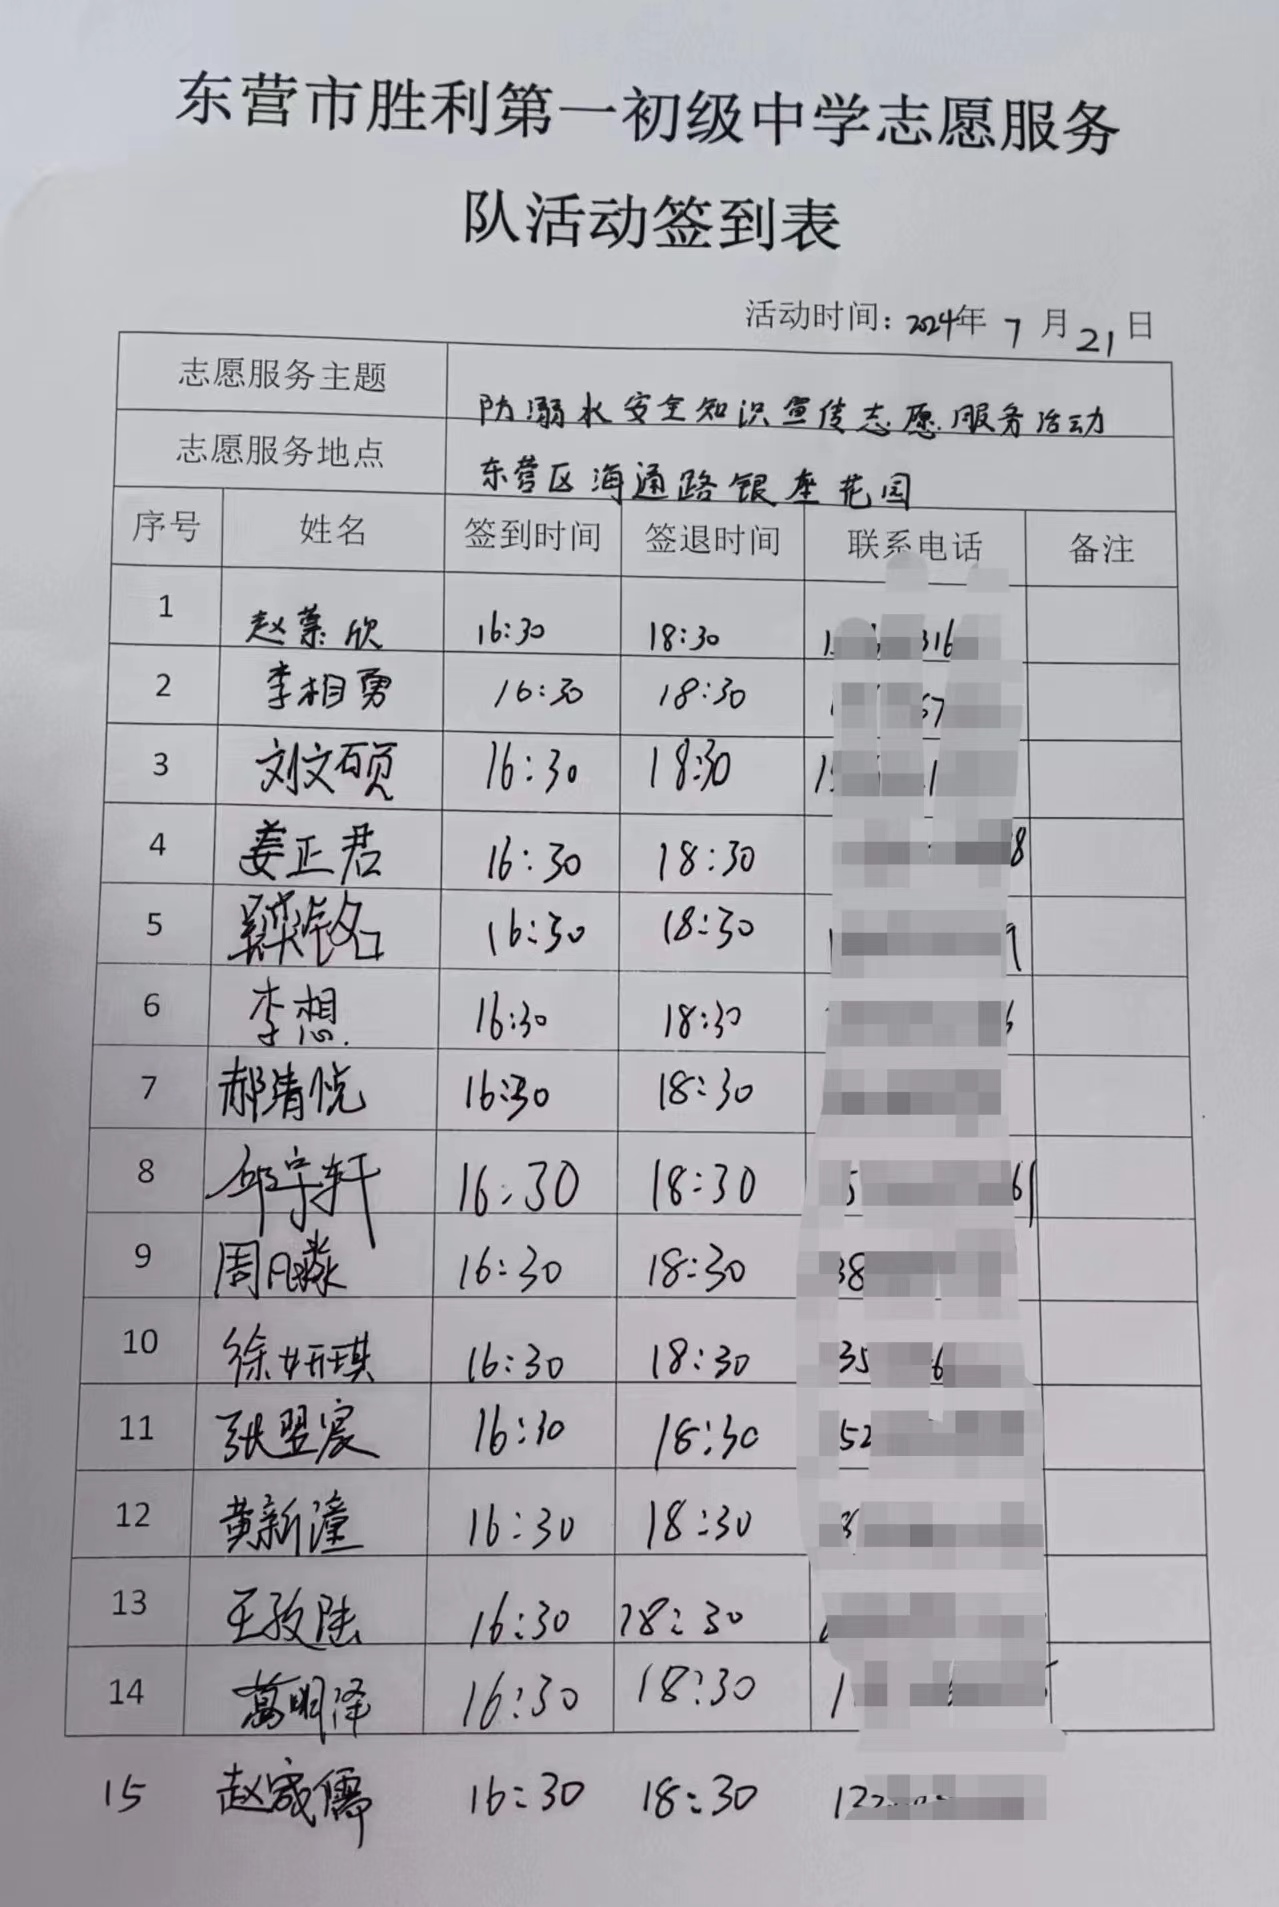 东营市胜利第一初级中学志愿服务
队活动签到表
活动时间：2024年 7 月 21 日
志愿服务主题 防溺水安全知识宣传志愿服务活动
志愿服务地点 东营区海通路银座花园
序号 姓名 签到时间 签退时间 联系电话 备注
1 赵 欣 16:30 18:30
2 李相勇 16:30 18:30
3 刘文硕 16:30 18:30
4 姜正君 16:30 18:30
5 铭 16:30 18:30
6 李想 16:30 18:30
7 郝清悦 16:30 18:30
8 邱宇轩 16:30 18:30
9 周凡淼 16:30 18:30
10 徐妍琪 16:30 18:30
11 张翌宸 16:30 18:30
12 黄新潼 16:30 18:30
13 王 陆 16:30 18:30
14 万明泽 16:30 18:30
15 赵宬儒 16:30 18:30